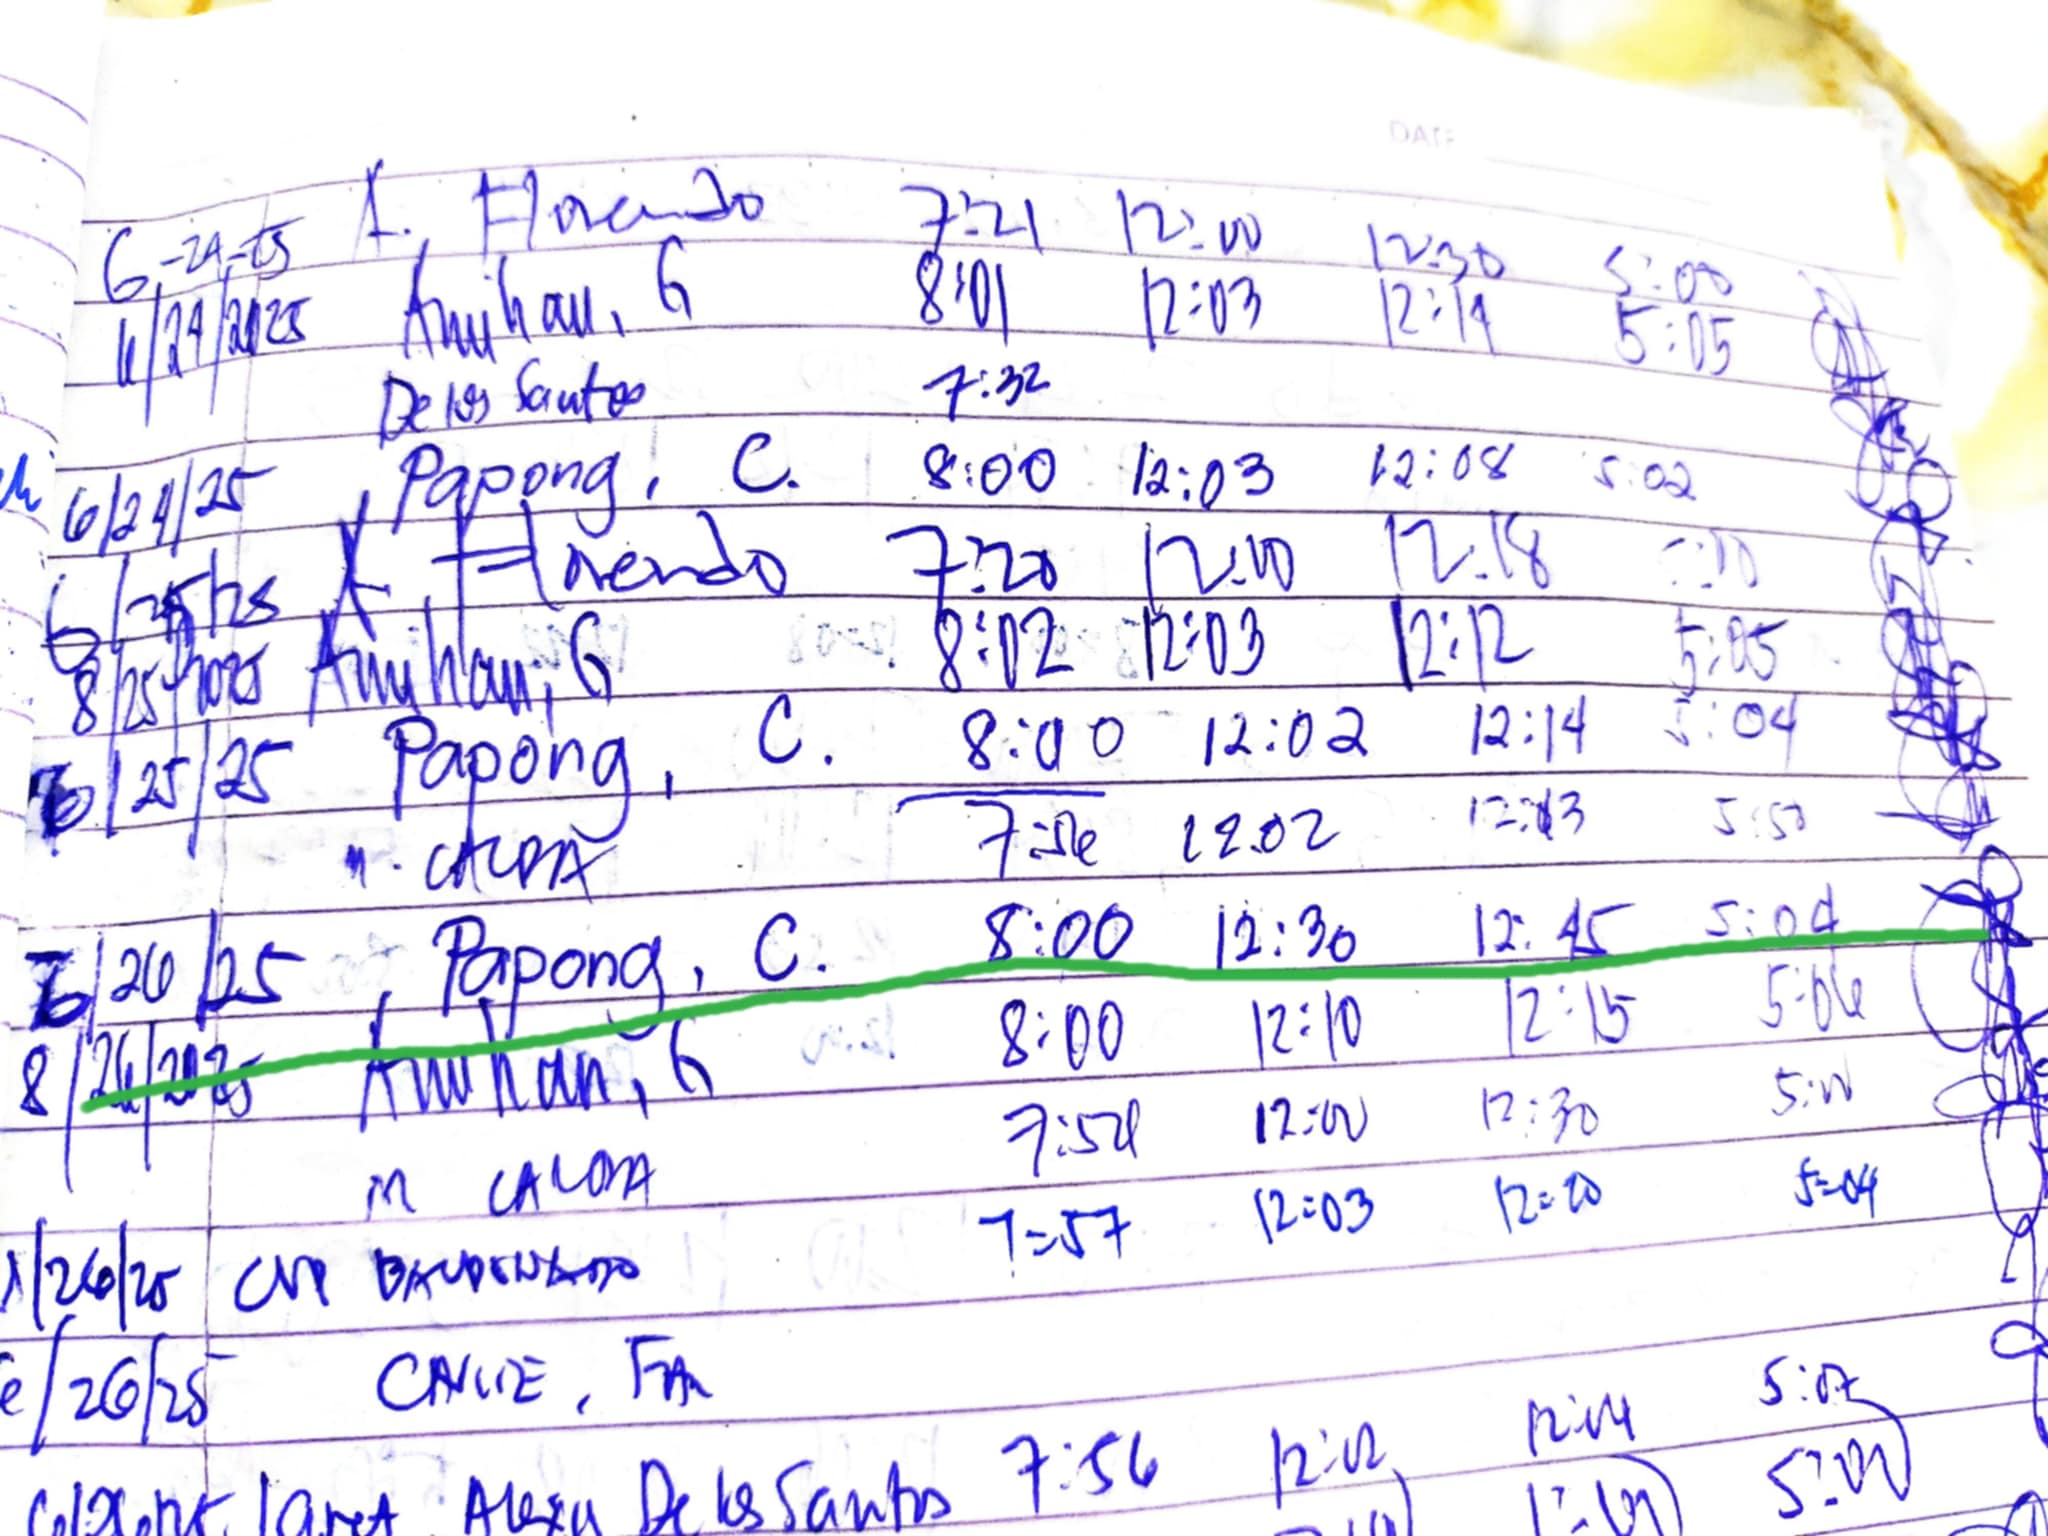 DATE
6-24-25 A. Florendo 7:21 12:00 12:30 5:00
6/24/2025 Anihan, G 8:01 12:03 12:14 5:05
Delos Santos 7:32
6/24/25 Papong, C. 8:00 12:03 12:08 5:02
6/25/25 A. Florendo 7:20 12:00 12:18
8/25/2025 Anihan, G 8:02 12:03 12:12 5:05
6/25/25 Papong, C. 8:00 12:02 12:14 5:04
M. CALODA 7:56 12:02 12:13 5:50
6/26/25 Papong, C. 8:00 12:30 12:45 5:04
8/26/2025 Anihan, G 8:00 12:10 12:15 5:06
M CALODA 7:54 12:00 12:30 5:00
/26/25 7:57 12:03 12:20 5:04
6/26/25
Alexa Delos Santos 7:56 12:02 12:04 5:07
5:00